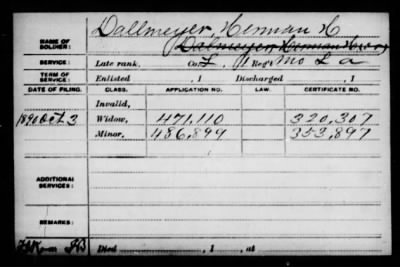 Dallmeyer, Herman H
NAME OF SOLDIER:
Dalmeyer Herman Henry
SERVICE: Late rank, Co. L, 11 Reg't Mo L a
TERM OF SERVICE: Enlisted , 1 Discharged , 1
DATE OF FILING. CLASS. APPLICATION NO. LAW. CERTIFICATE NO.
Invalid,
1890 Oct 3 Widow, 471,110 320,307
Minor, 486,899 353,897
ADDITIONAL SERVICES:
REMARKS:
Died , 1 , at